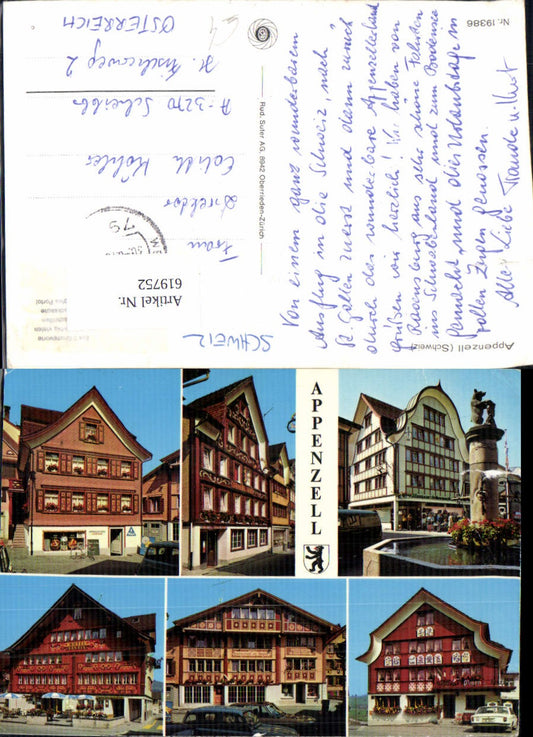 Appenzell (Schweiz)
Nr. 19386
Von einem ganz wunderbaren
Ausflug in die Schweiz, nach
St. Gallen zuerst und dann zurück
durch das wunderbare Appenzellerland
grüßen wir herzlich! Wir haben von
Ravensburg aus sehr schöne Fahrten
ins Schwabenland und zum Bodensee
gemacht und die Urlaubstage in
vollen Zügen genossen.
Alles Liebe
Rud. Suter A.G. 8942 Oberrieden-Zürich
SCHWEIZ
Frau
Direktor
Edith Köhler
A-3270 Scheibbs
2
ÖSTERREICH
79
Artikel Nr.
619752
APPENZELL